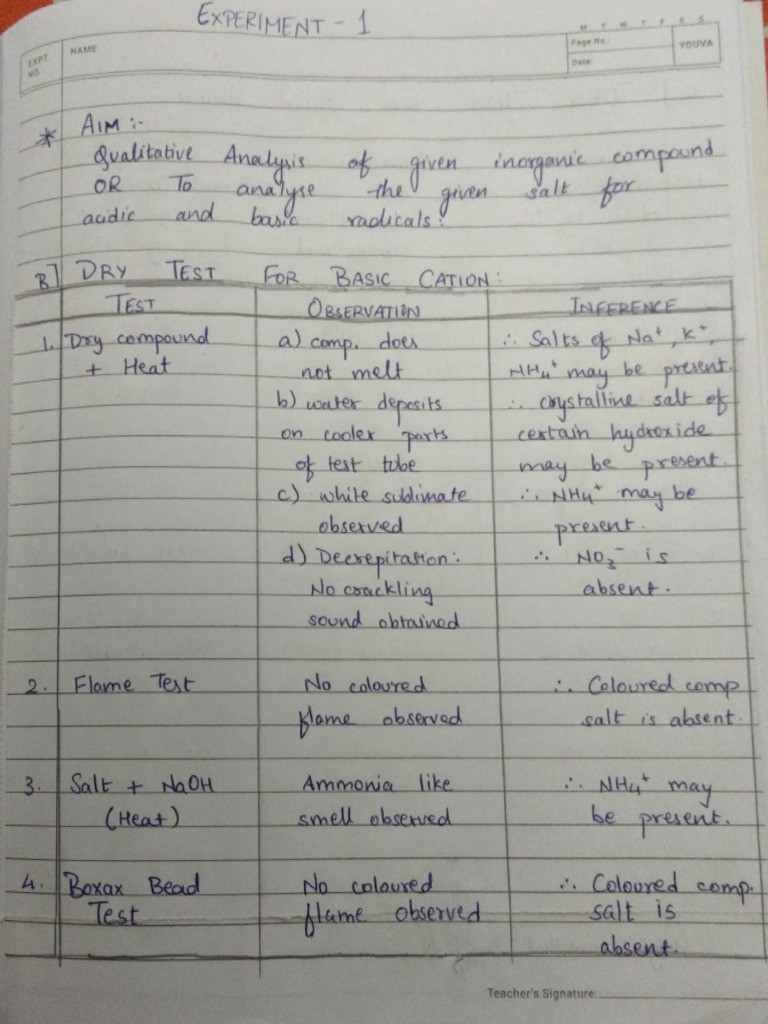 EXPERIMENT - 1
M T W T F S S
EXPT. NO.
NAME
Page No.:
Date:
YOUVA
* AIM :-
Qualitative Analysis of given inorganic compound
OR To analyse the given salt for
acidic and basic radicals.
B] DRY TEST FOR BASIC CATION:
TEST OBSERVATION INFERENCE
1. Dry compound a) comp. does ∴ Salts of Na⁺, K⁺,
+ Heat not melt NH₄⁺ may be present.
b) water deposits ∴ crystalline salt of
on cooler parts certain hydroxide
of test tube may be present.
c) white sublimate ∴ NH₄⁺ may be
observed present.
d) Decrepitation: ∴ NO₃⁻ is
No crackling absent.
sound obtained
2. Flame Test No coloured ∴ Coloured comp
flame observed salt is absent.
3. Salt + NaOH Ammonia like ∴ NH₄⁺ may
(Heat) smell observed be present.
4. Borax Bead No coloured ∴ Coloured comp.
Test flame observed salt is
absent.
Teacher's Signature: